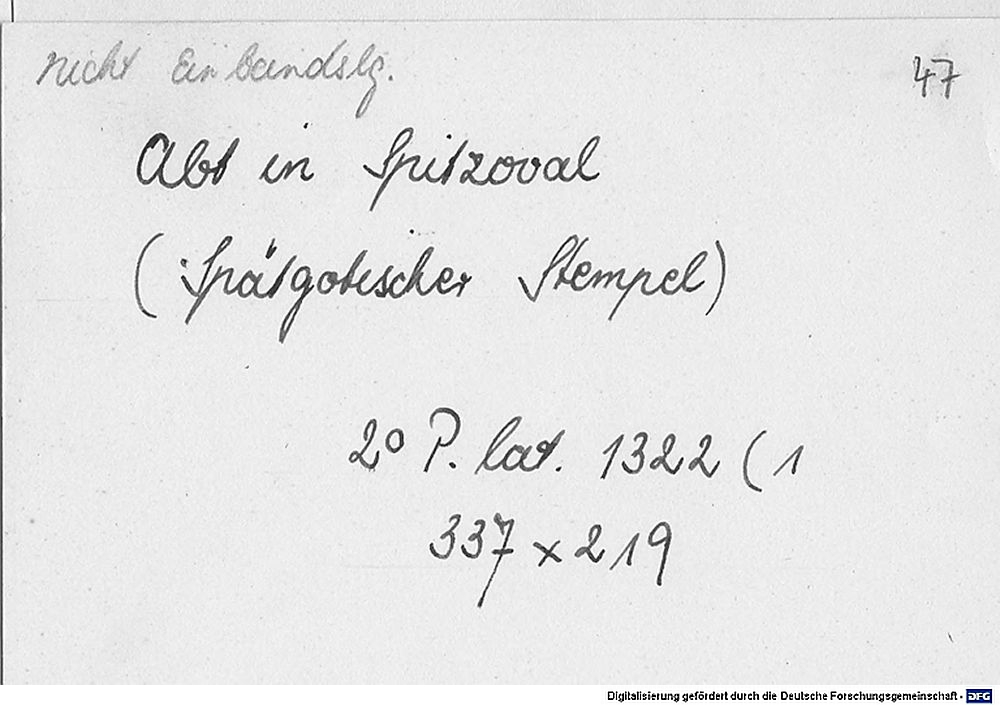 nicht Einbandslg.
47
Abt in Spitzoval
(Spätgotischer Stempel)
2° P. lat. 1322 (1
337 x 219
Digitalisierung gefördert durch die Deutsche Forschungsgemeinschaft - DFG